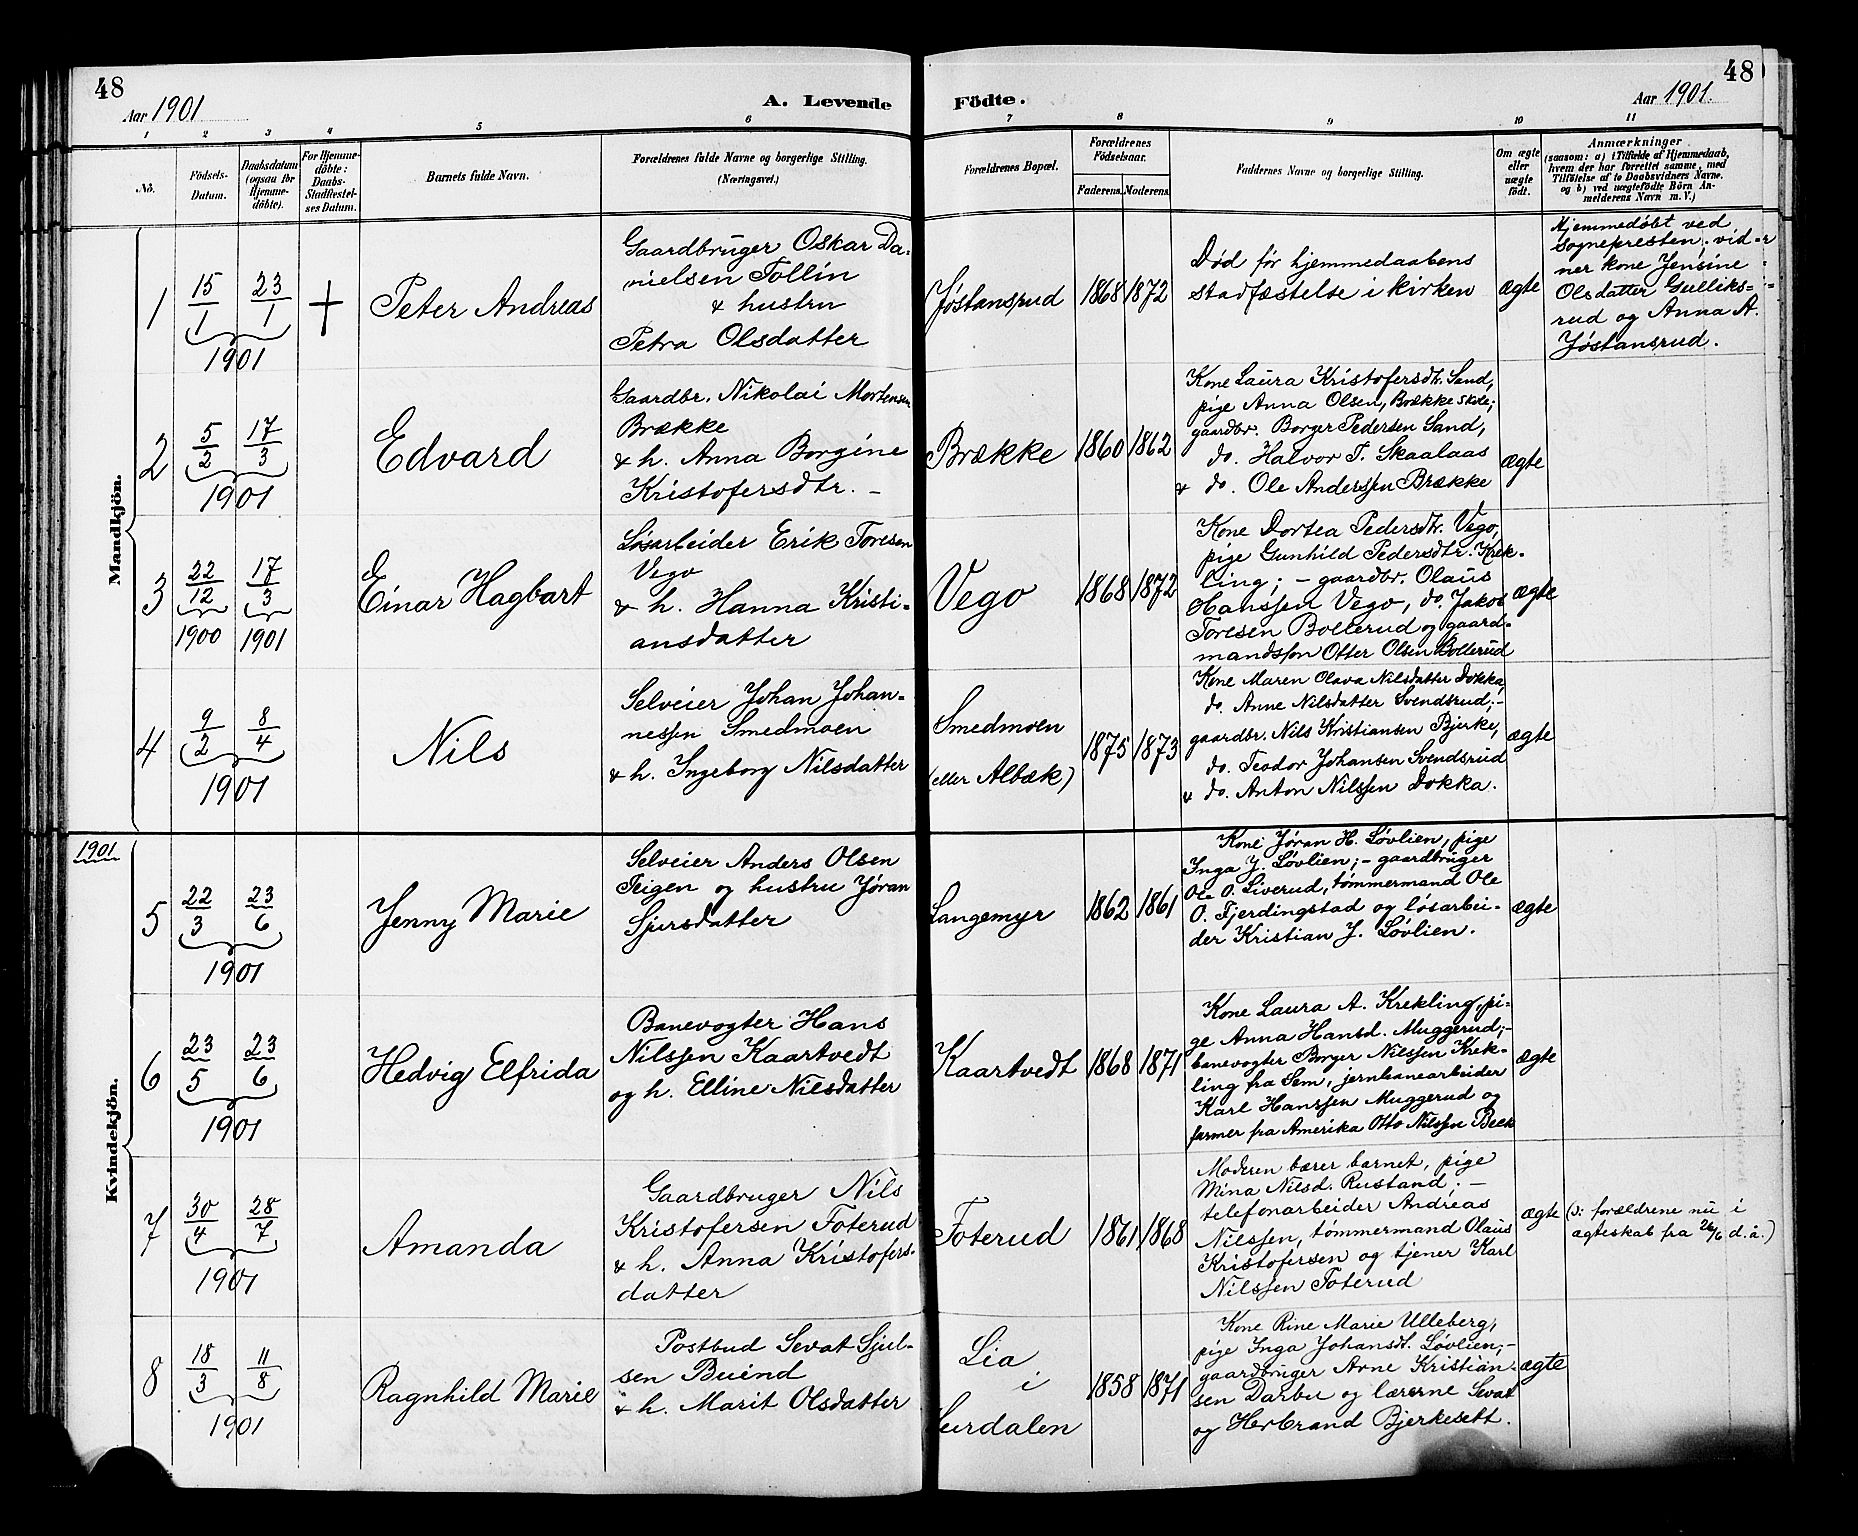 48
Aar 1901
A. Levende Födte.
Aar 1901.
48
1 2 3 4 5 6 7 8 9 10 11
No.
Födsels-
Datum.
Daabsdatum
(ogsaa for
Hjemme-
döbte).
For Hjemme-
döbte:
Daabs-
Stadfæstel-
ses Datum.
Barnets fulde Navn.
Forældrenes fulde Navne og borgerlige Stilling.
(Næringsvei.)
Forældrenes Bopæl.
Forældrenes
Födselsaar.
Faderens. Moderens.
Faddernes Navne og borgerlige Stilling.
Om ægte
eller
uægte
födt.
Anmærkninger
(saasom: a) i Tilfælde af Hjemmedaab,
hvem der har forrettet samme, med
Tilföielse af to Daabsvidners Navne.
og b) ved uægtefödte Börn An-
melderens Navn m. V.)
Mandkjön.
1
15/1 23/1
1901
+
Peter Andreas
Gaardbruger Oskar Da-
nielsen Tollin
& hustru
Petra Olsdatter
Jøstansrud
1868 1872
Død før hjemmedaabens
stadfæstelse i kirken
ægte
Hjemmedøbt ved
sognepresten; vid-
ner kone Jensine
Olsdatter Gulliks-
rud og Anna A.
Jøstansrud.
2
5/2 17/3
1901
Edvard
Gaardbr. Nikolai Mortensen
Brække
& h. Anna Borgine
Kristofersdtr. -
Brække
1860 1862
Kone Laura Kristofersdtr. Sand,
pige Anna Olsen, Brække skole;
gaardbr. Borger Pedersen Sand,
do. Halvor T. Skaalaas
& do. Ole Anderssen Brække
ægte
3
22/12 17/3
1900 1901
Einar Hagbart
Løsarbeider Erik Toresen
Vego
& h. Hanna Kristi-
ansdatter
Vego
1868 1872
Kone Dortea Pedersdtr. Vego,
pige Gunhild Pedersdtr. Krek-
ling; - gaardbr. Olaus
Hanssen Vego, do. Jakob
Toresen Bollerud og gaard-
mandssøn Otter Olsen Bollerud
ægte
4
9/2 8/4
1901
Nils
Selveier Johan Johan-
nessen Smedmoen
& h. Ingeborg Nilsdatter
Smedmoen
(eller Albæk)
1875 1873
Kone Maren Olava Nilsdatter Dokka,
do. Anne Nilsdatter Svendsrud; -
gaardbr. Nils Kristiansen Bjerke,
do. Teodor Johansen Svendsrud
& do. Anton Nilssen Dokka.
ægte
1901
Kvindekjön.
5
22/3 23/6
1901
Jenny Marie
Selveier Anders Olsen
Teigen og hustru Jøran
Sjursdatter
Langemyr
1862 1861
Kone Jøran H. Løvlien, pige
Inga J. Løvlien; - gaardbruger
Ole O. Liverud, tømmermand Ole
O. Fjerdingstad og løsarbei-
der Kristian J. Løvlien.
ægte
6
23/5 23/6
1901
Hedvig Elfrida
Banevogter Hans
Nilssen Kaartvedt
og h. Elline Nilsdatter
Kaartvedt
1868 1871
Kone Laura A. Krekling, pi-
ge Anna Hansd. Muggerud; -
banevogter Borger Nilssen Krek-
ling fra Sem, jernbanearbeider
Karl Hanssen Muggerud og
farmer fra Amerika Otto Nilssen Beck
ægte
7
30/4 28/7
1901
Amanda
Gaardbruger Nils
Kristofersen Foterud
& h. Anna Kristofers-
datter
Foterud
1861 1868
Moderen bærer barnet, pige
Mina Nilsd. Rustand; -
telefonarbeider Andreas
Nilssen, tømmermand Olaus
Kristofersen og tjener Karl
Nilssen Foterud
ægte
(ɔ: forældrene nu i
ægteskab fra 26/6 d.å.)
8
18/3 11/8
1901
Ragnhild Marie
Postbud Sevat Sjul-
sen Buind
& h. Marit Olsdatter
Lia
i
Surdalen
1858 1871
Kone Rine Marie Ulleberg,
pige Inga Johansdt. Løvlien; -
gaardbruger Arne Kristian-
sen Darbu og lærerne Sevat
og Herbrand Bjerkesett.
ægte